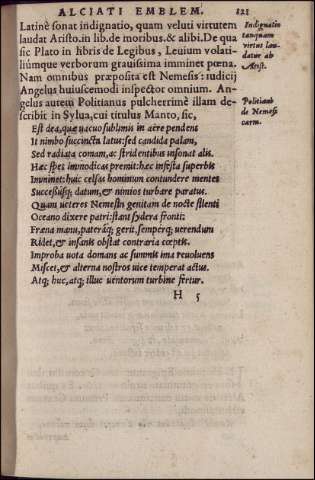 ALCIATI EMBLEM. 121
Latinè sonat indignatio, quam veluti virtutem
laudat Aristo. in lib. de moribus. & alibi. De qua
sic Plato in libris de Legibus, Leuium volati-
liúmque verborum grauissima imminet pœna.
Nam omnibus præposita est Nemesis: iudicij
Angelus huiuscemodi inspector omnium. An-
gelus autem Politianus pulcherrimè illam de-
scribit in Sylua, cui titulus Manto, sic,
Est dea, quæ uacuo sublimis in aëre pendens
It nimbo succincta latus: sed candida pallam,
Sed radiata comam, ac stridentibus insonat alis.
Hæc spes immodicas premit: hæc infesta superbis
Imminet: huic celsas hominum contundere mentes
Successusq́; datum, & nimios turbare paratus.
Quam ueteres Nemesin genitam de nocte silenti
Oceano dixere patri: stant sydera fronti:
Fræna manu, pateráq; gerit, sempérq; uerendum
Ridet, & insanis obstat contraria cœptis.
Improba uota domans ac summis ima reuoluens
Miscet, & alterna nostros uice temperat actus.
Atq; huc, atq; illuc uentorum turbine fertur.
H 5
Indignatio
tanquam
virtus lau-
datur ab
Arist.
Politiani
de Nemesi
carm.